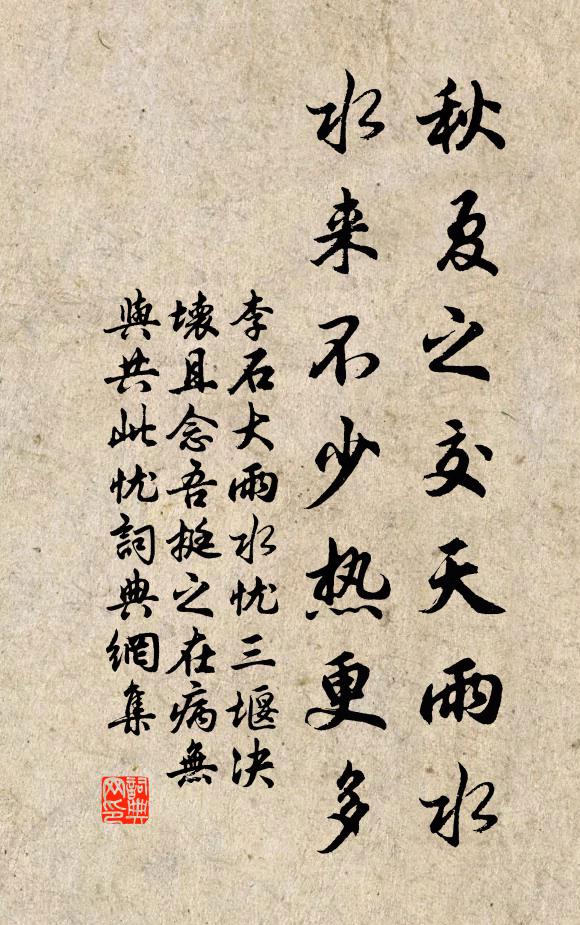 秋夏之交天雨水
水来不少热更多
李石大雨水忧三堰决
壞且念吾挺之在病無
與共此忧詞典網集
詞典
网印